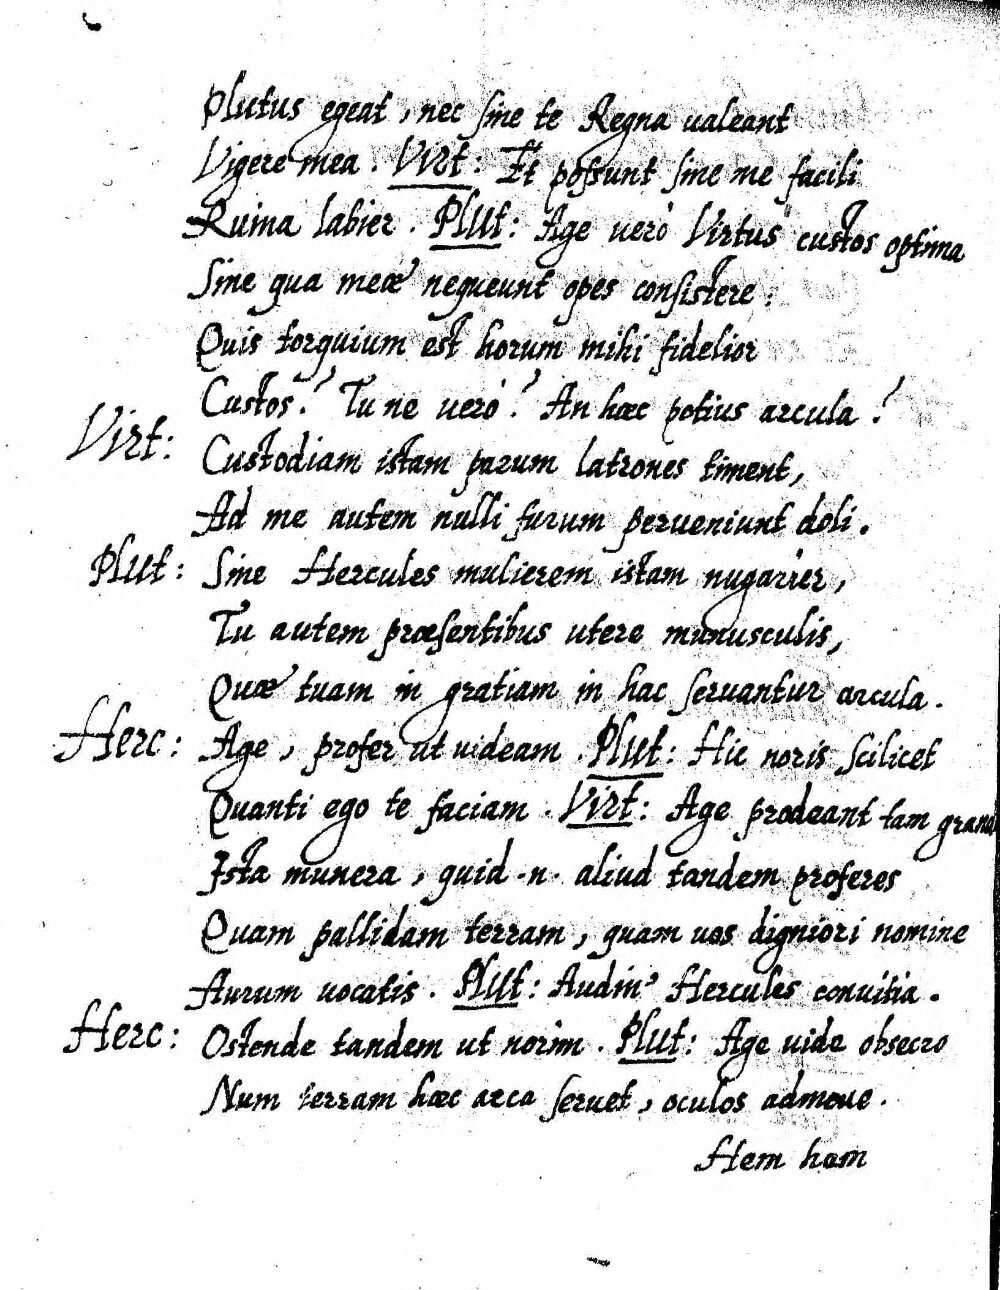 Plutus egeat, nec sine te Regna ualeant
Vigere mea. Virt: Et possunt sine me facili
Ruina labier. Plut: Age uerò Virtus custos optima
Sine qua meæ nequeunt opes consistere:
Quis torquium est horum mihi fidelior
Custos? Tu ne uerò? An hæc potius arcula?
Virt: Custodiam istam parum latrones timent,
Ad me autem nulli furum perueniunt doli.
Plut: Sine Hercules mulierem istam nugarier,
Tu autem præsentibus utere munusculis,
Quæ tuam in gratiam in hac seruantur arcula.
Herc: Age, profer ut uideam. Plut: Hic noris scilicet
Quanti ego te faciam. Virt: Age prodeant tam
Ista munera, quid .n. aliud tandem proferes
Quam pallidam terram, quam uos digniori nomine
Aurum uocatis. Plut: Audin' Hercules conuitia.
Herc: Ostende tandem ut norim. Plut: Age uide obsecro
Num terram hæc arca seruet, oculos admoue.
Hem hem